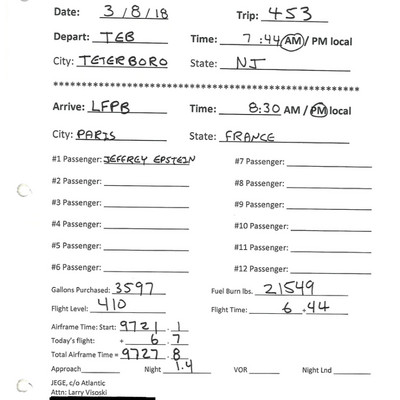 Date: 3/8/18 Trip: 453
Depart: TEB Time: 7:44 AM / PM local
City: TETERBORO State: NJ
************************************************************
Arrive: LFPB Time: 8:30 AM / PM local
City: PARIS State: FRANCE
#1 Passenger: JEFFREY EPSTEIN #7 Passenger:
#2 Passenger: #8 Passenger:
#3 Passenger: #9 Passenger:
#4 Passenger: #10 Passenger:
#5 Passenger: #11 Passenger:
#6 Passenger: #12 Passenger:
Gallons Purchased: 3597 Fuel Burn lbs. 21549
Flight Level: 410 Flight Time: 6 + 44
Airframe Time: Start: 9721 . 1
Today's flight: + 6 . 7
Total Airframe Time = 9727 . 8
Approach Night 1.4 VOR Night Lnd
JEGE, c/o Atlantic
Attn: Larry Visoski